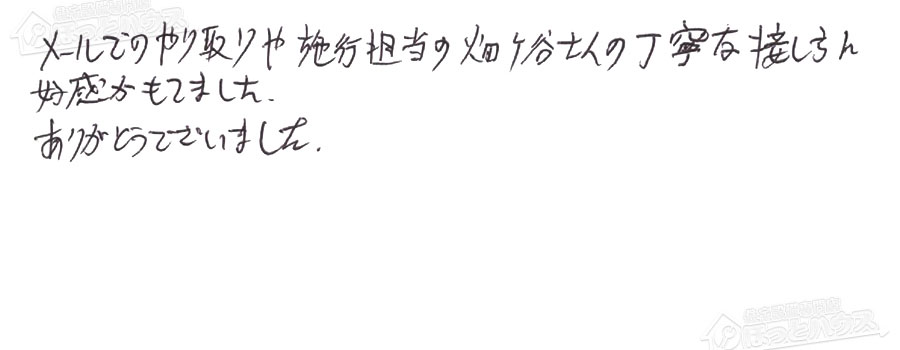 メールでのやり取りや施行担当の畑ケ谷さんの丁寧な接しられ
好感がもてました.
ありがとうございました.
ほっとハウス